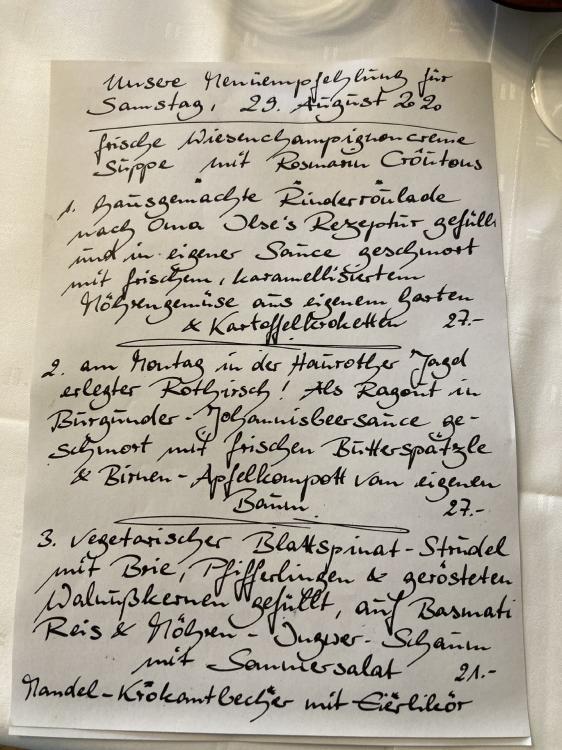 Unsere Menüempfehlung für
Samstag, 29. August 2020
frische Wiesenchampignoncreme
Suppe mit Rosmarin Croûtons
1. hausgemachte Rinderroulade
nach Oma Ilse's Rezeptur gefüllt
und in eigener Sauce geschmort
mit frischem, karamellisiertem
Möhrengemüse aus eigenem Garten
& Kartoffelkroketten 27.-
2. am Montag in der Hanrother Jagd
erlegter Rothirsch! Als Ragout in
Burgunder-Johannisbeersauce ge-
schmort mit frischen Butterspätzle
& Birnen-Apfelkompott vom eigenen
Baum 27.-
3. Vegetarischer Blattspinat-Strudel
mit Brie, Pfifferlingen & gerösteten
Walnußkernen gefüllt, auf Basmati
Reis & Möhren-Ingwer-Schaum
mit Sommersalat 21.-
Mandel-Krokantbecher mit Eierlikör